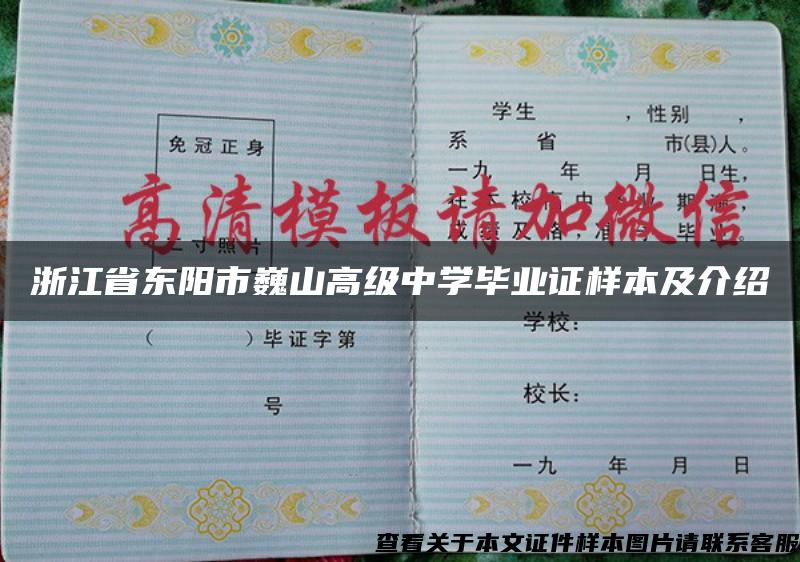 免冠正身
二寸照片
（ ）毕证字第
号
学生 ，性别 ，
系 省 市(县)人。
一九 年 月 日生，
在 校 中 业 期满，
成绩及格，准 毕业。
高清模板请加微信
浙江省东阳市巍山高级中学毕业证样本及介绍
学校：
校长：
一九 年 月 日
查看关于本文证件样本图片请联系客服